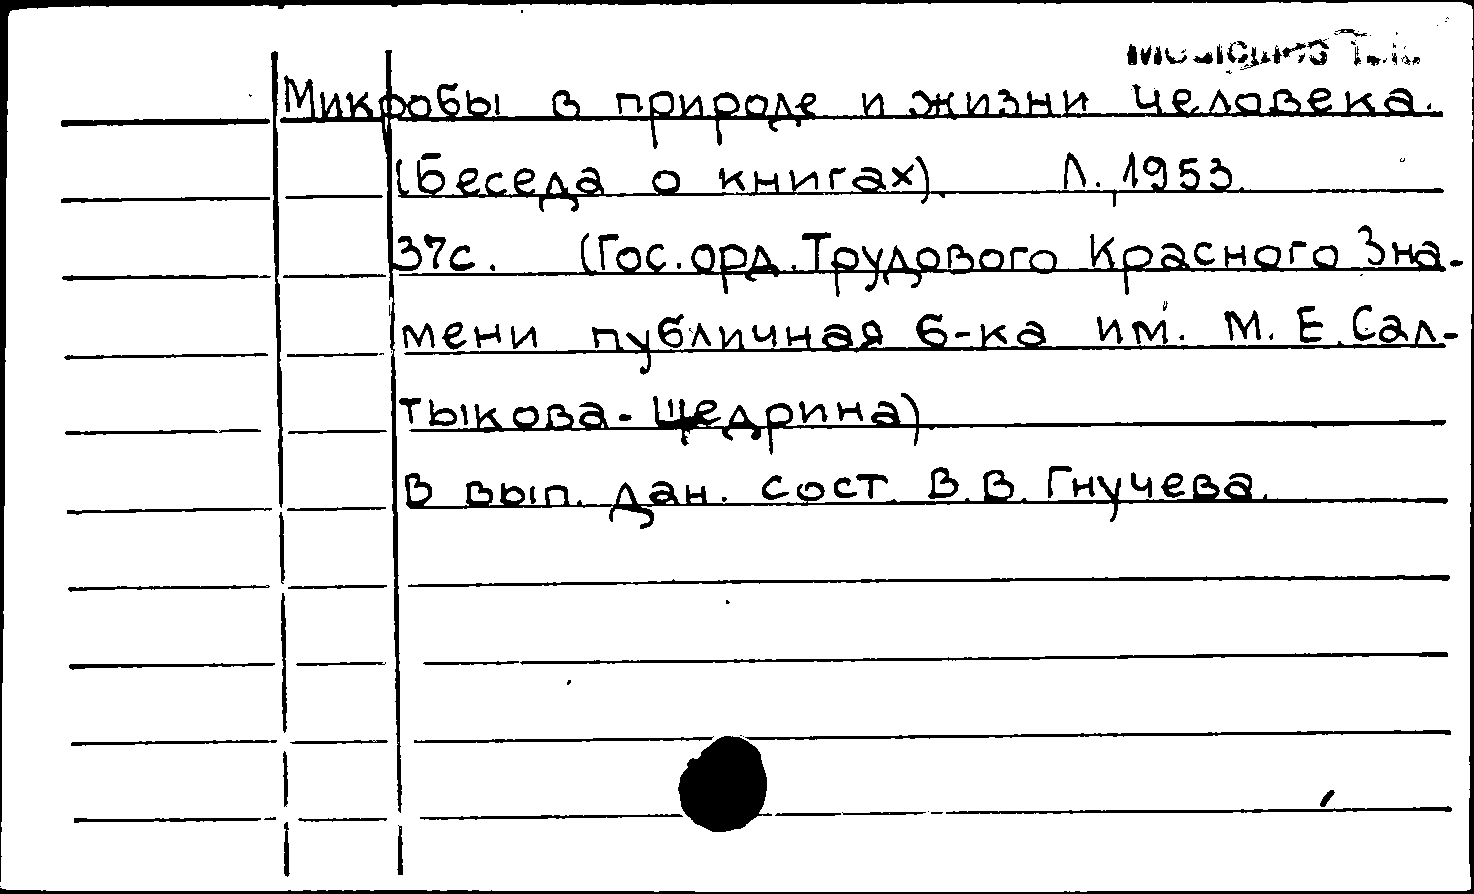 Микробы в природе и жизни человека.
(Беседа о книгах). Л., 1953.
37с. (Гос. орд. Трудового Красного Зна-
мени публичная б-ка им. М. Е. Сал-
тыкова-Щедрина)
В вып. дан. сост. В.В. Гнучева.